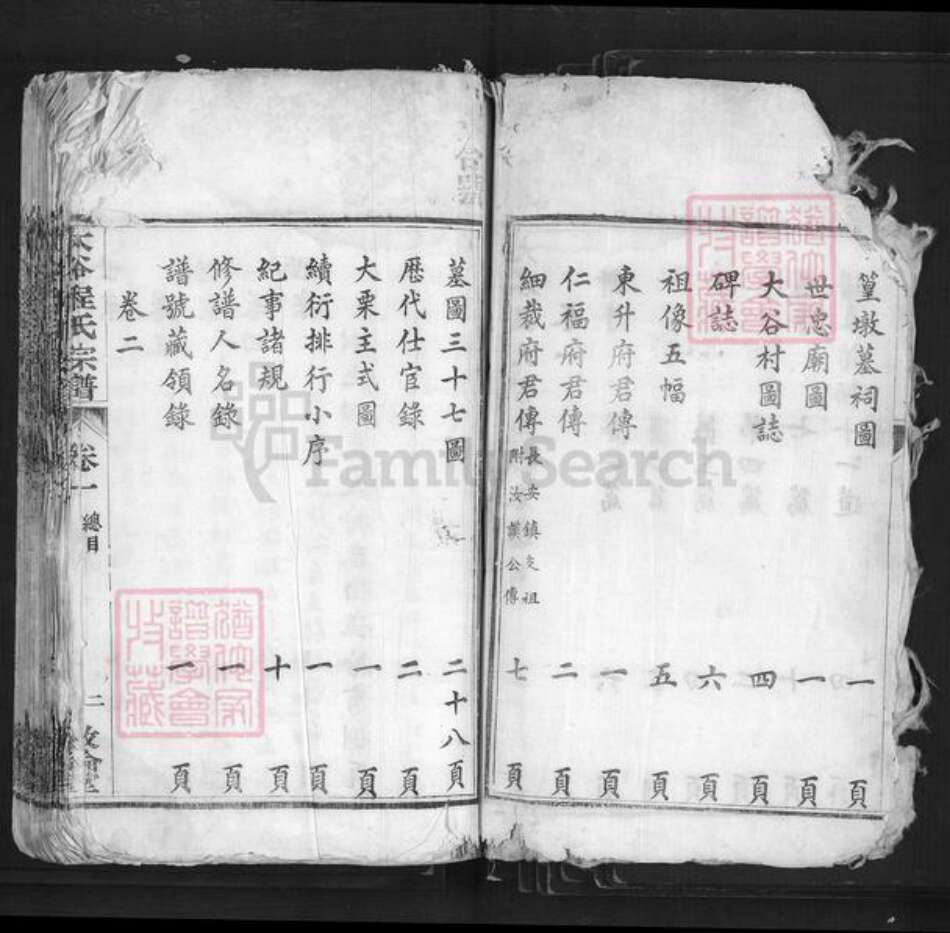 篁墩墓祠圖 一頁
世忠廟圖 一頁
大谷村圖誌 四頁
碑誌 六頁
祖像五幅 五頁
東升府君傳 一頁
仁福府君傳 二頁
細裁府君傳 長安鎮支祖 附汝漢公傳 七頁
墓圖三十七圖 二十八頁
歷代仕官錄 二頁
大栗主式圖 一頁
續衍排行小序 一頁
紀事諸規 十頁
修譜人名錄 一頁
譜號藏領錄 一頁
卷二
大谷程氏宗譜 卷一 總目 二
FamilySearch